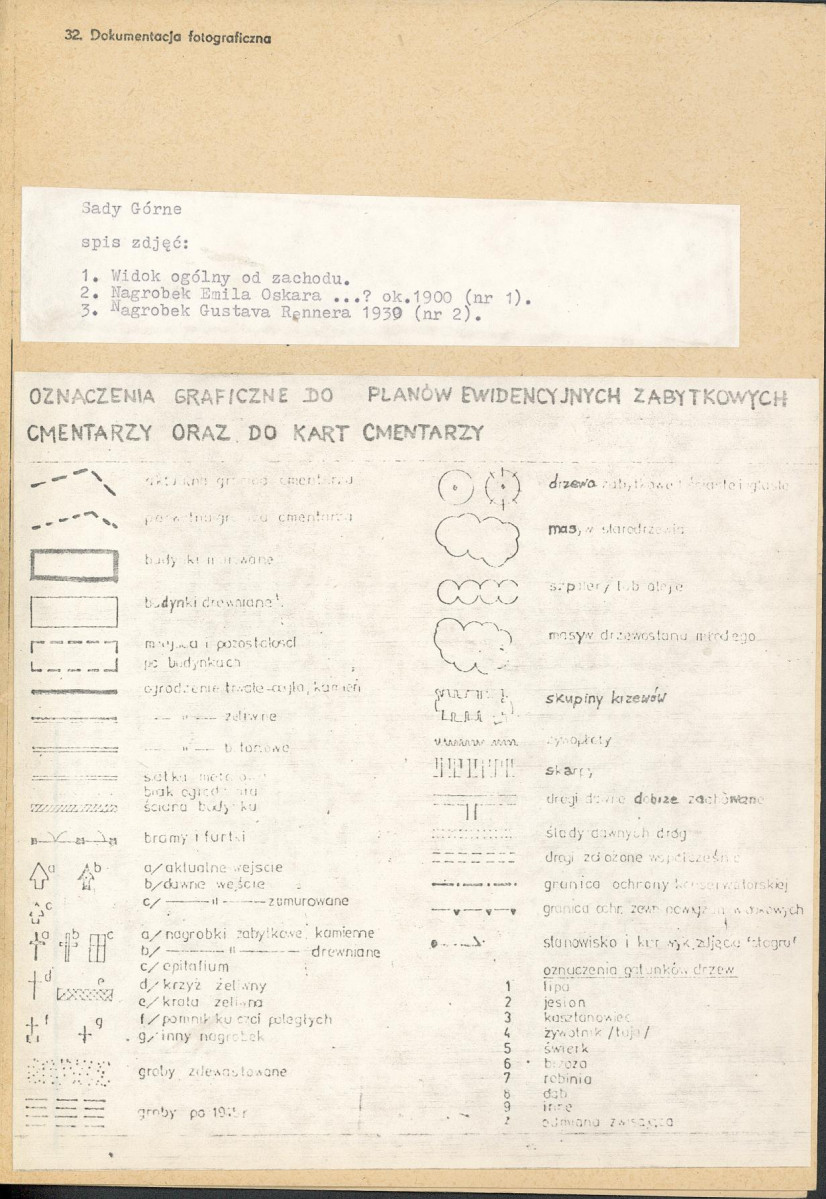 32. Dokumentacja fotograficzna
Sady Górne
spis zdjęć:
1. Widok ogólny od zachodu.
2. Nagrobek Emila Oskara ...? ok.1900 (nr 1).
3. Nagrobek Gustava Rennera 1939 (nr 2).
OZNACZENIA GRAFICZNE DO PLANÓW EWIDENCYJNYCH ZABYTKOWYCH
CMENTARZY ORAZ DO KART CMENTARZY
aktualna granica cmentarza
pierwotna granica cmentarza
budynki murowane
budynki drewniane
miejsca i pozostałości
po budynkach
ogrodzenie trwałe-cegła, kamień
—— " —— żeliwne
—— " —— betonowe
siatka metalowa
brak ogrodzenia
ściana budynku
bramy i furtki
a b
a/ aktualne wejście
b/ dawne wejście
c
c/ —— " —— zamurowane
a b c
a/ nagrobki zabytkowe, kamienne
b/ —— " —— drewniane
c/ epitafium
d e
d/ krzyż żeliwny
e/ krata żeliwna
f g
f/ pomnik ku czci poległych
g/ inny nagrobek
groby zdewastowane
groby po 1945r
drzewa zabytkowe iglaste
masyw starodrzewia
szpalery lub aleje
masyw drzewostanu młodego
skupiny krzewów
żywopłoty
skarpy
drogi dawne dobrze zachowane
ślady dawnych dróg
drogi założone współcześnie
granica ochrony konserwatorskiej
granica ochr. zewn. powiązań widokowych
stanowisko i kier. wyk. zdjęcia fotograf
oznaczenia gatunków drzew
1 lipa
2 jesion
3 kasztanowiec
4 żywotnik /tuja/
5 świerk
6 brzoza
7 robinia
8 dąb
9 inne
z odmiana zwisająca